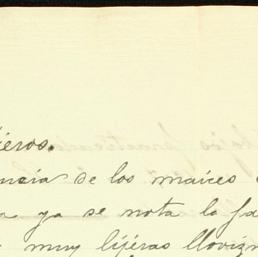 jeros.
ncia de los maíces
ya se nota la fa
muy lijeras llovizn